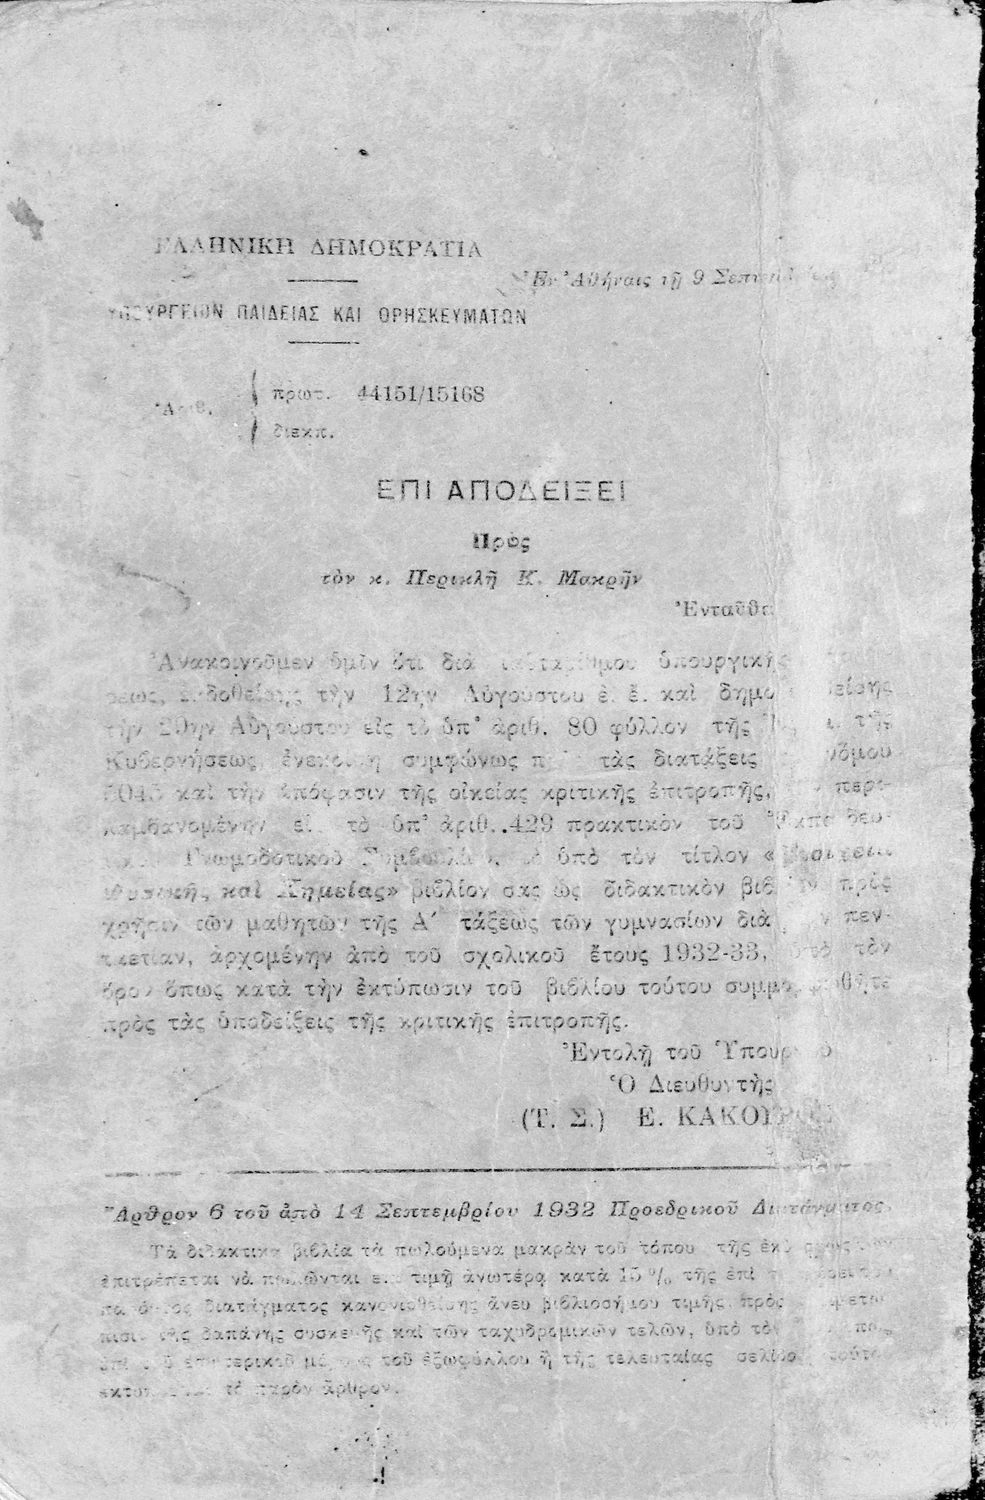 ΕΛΛΗΝΙΚΗ ΔΗΜΟΚΡΑΤΙΑ
Ἐν Ἀθήναις τῇ 9
ΥΠΟΥΡΓΕΙΟΝ ΠΑΙΔΕΙΑΣ ΚΑΙ ΘΡΗΣΚΕΥΜΑΤΩΝ
Ἀριθ. πρωτ. 44151/15168
διεκπ.
ΕΠΙ ΑΠΟΔΕΙΞΕΙ
Πρὸς
τὸν κ. Περικλῆ Κ. Μακρῆν
Ἐνταῦθα
Ἀνακοινοῦμεν ὑμῖν ὅτι διὰ ὑπουργικῆς
σεως, ἐκδοθείσης τὴν 12ην Αὐγούστου ἐ. ἔ. καὶ
τὴν 20ην Αὐγούστου εἰς τὸ ὑπ' ἀριθ. 80 φύλλον τῆς τῆς
Κυβερνήσεως, ἐνεκρίθη συμφώνως τὰς διατάξεις νόμου
5045 καὶ τὴν ἀπόφασιν τῆς οἰκείας κριτικῆς ἐπιτροπῆς, περι-
λαμβανομένην εἰς τὸ ὑπ' ἀριθ. 429 πρακτικὸν τοῦ Ἐκπαιδευ-
Γνωμοδοτικοῦ Συμβουλίου, τὸ ὑπὸ τὸν τίτλον «Στοιχεῖα
Φυσικῆς καὶ Χημείας» βιβλίον σας ὡς διδακτικὸν βιβλίον πρὸς
χρῆσιν τῶν μαθητῶν τῆς Α′ τάξεως τῶν γυμνασίων διὰ πεν-
ταετίαν, ἀρχομένην ἀπὸ τοῦ σχολικοῦ ἔτους 1932-33, ὑπὸ τὸν
ὅρον ὅπως κατὰ τὴν ἐκτύπωσιν τοῦ βιβλίου τούτου συμμορφωθῆτε
πρὸς τὰς ὑποδείξεις τῆς κριτικῆς ἐπιτροπῆς.
Ἐντολῇ τοῦ Ὑπουργοῦ
Ὁ Διευθυντὴς
(Τ. Σ.) Ε.
Ἄρθρον 6 τοῦ ἀπὸ 14 Σεπτεμβρίου 1932 Προεδρικοῦ Διατάγματος.
Τὰ διδακτικὰ βιβλία τὰ πωλούμενα μακρὰν τοῦ τόπου τῆς
ἐπιτρέπεται νὰ πωλῶνται τιμῇ ἀνωτέρᾳ κατὰ 15 % τῆς ἐπὶ
διατάγματος κανονισθείσης ἄνευ βιβλιοσήμου τιμῆς πρὸς
τῆς δαπάνης συσκευῆς καὶ τῶν ταχυδρομικῶν τελῶν, ὑπὸ τὸν
τοῦ ἐξωφύλλου ἢ τῆς τελευταίας
τὸ παρὸν ἄρθρον.